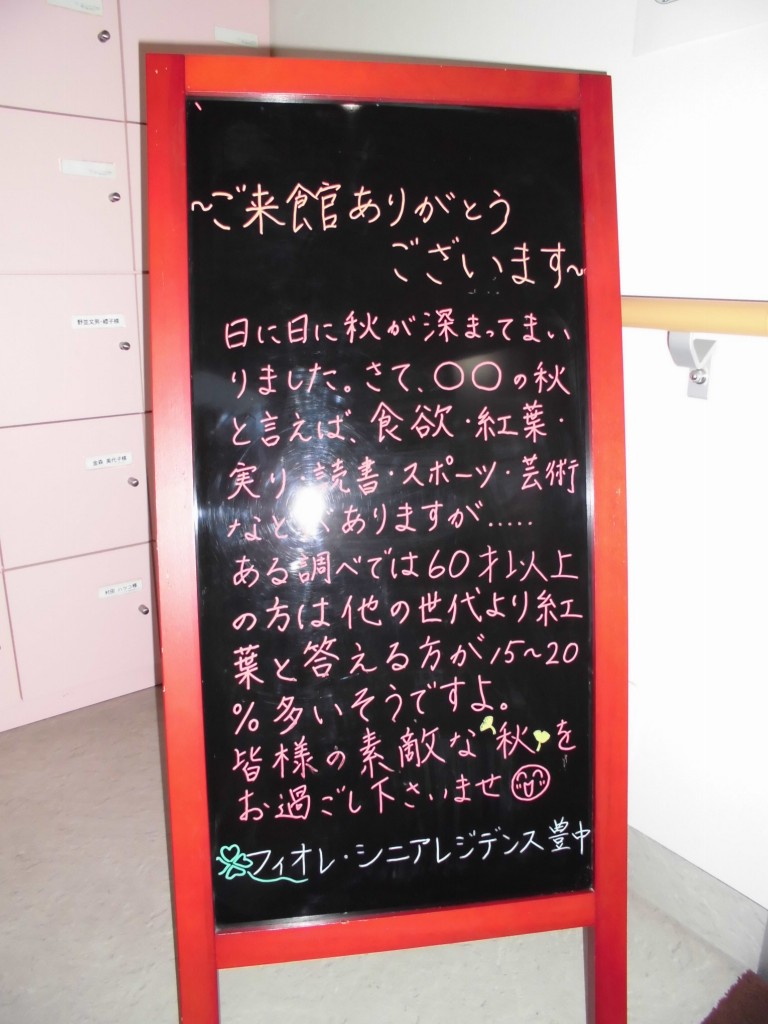 ～ご来館ありがとう
ございます～
日に日に秋が深まってまい
りました。さて、〇〇の秋
と言えば、食欲・紅葉・
実り・読書・スポーツ・芸術
などがありますが.....
ある調べでは60才以上
の方は他の世代より紅
葉と答える方が15～20
%多いそうですよ。
皆様の素敵な秋を
お過ごし下さいませ
フィオレ・シニアレジデンス豊中